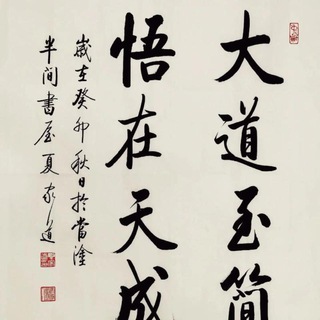 大道至简
悟在天成
岁在癸卯秋日於當塗
半间書屋夏家道